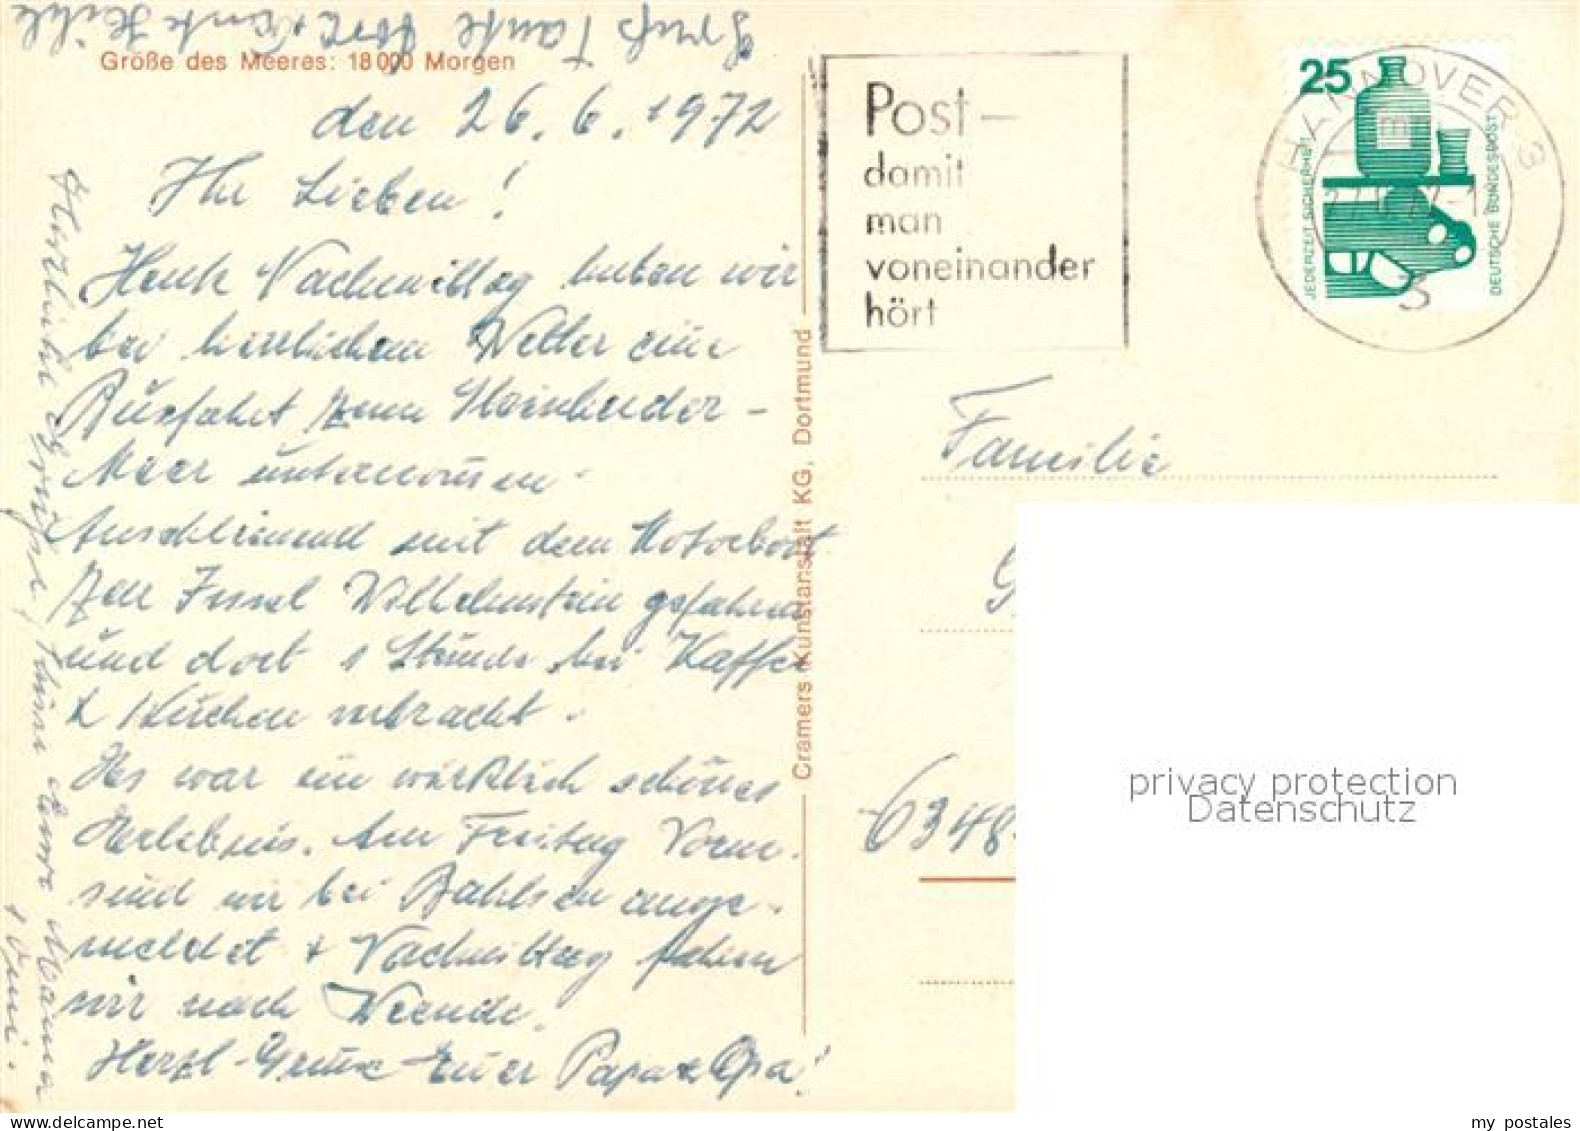 Gruß Tante
Größe des Meeres: 18 000 Morgen
den 26. 6. 1972
Ihr Lieben!
Heute Nachmittag haben wir
bei herrlichem Wetter eine
Busfahrt zum Steinhuder-
Meer unternommen.
Anschliessend mit dem Motorboot
zur Insel Wilhelmstein gefahren
und dort 1 Stunde bei Kaffee
& Kuchen verbracht.
Es war ein wirklich schönes
Erlebnis. Am Freitag Vorm.
sind wir bei Bahlsen ange-
meldet + Nachmittag fahren
wir nach Weende.
Herzl. Grüsse Euer Papa & Opa!
Herzliche Grüsse, Eure Mama
+ Omi.
Cramers Kunstanstalt KG, Dortmund
Post-
damit
man
voneinander
hört
25
JEDERZEIT SICHERHEIT
DEUTSCHE BUNDESPOST
HANNOVER 3
Familie
6348
privacy protection
Datenschutz
my postales